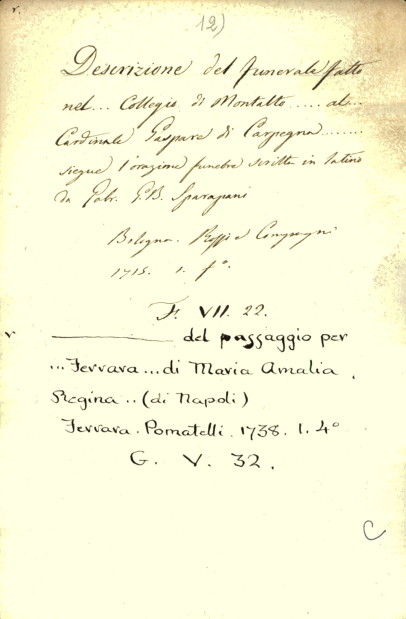 r.
12)
Descrizione del funerale fatto
nel... Collegio di Montalto ..... al...
Cardinale Gaspare di Carpegna ........
siegue l'orazione funebre scritta in latino
da Gabr. G.B. Sparapani
Bologna. Rossi e Compagni
1715. 1. fº.
F. VII. 22.
———— del passaggio per
... Ferrara ... di Maria Amalia
Regina .. (di Napoli)
Ferrara. Pomatelli. 1738. 1. 4º
G. V. 32.
C